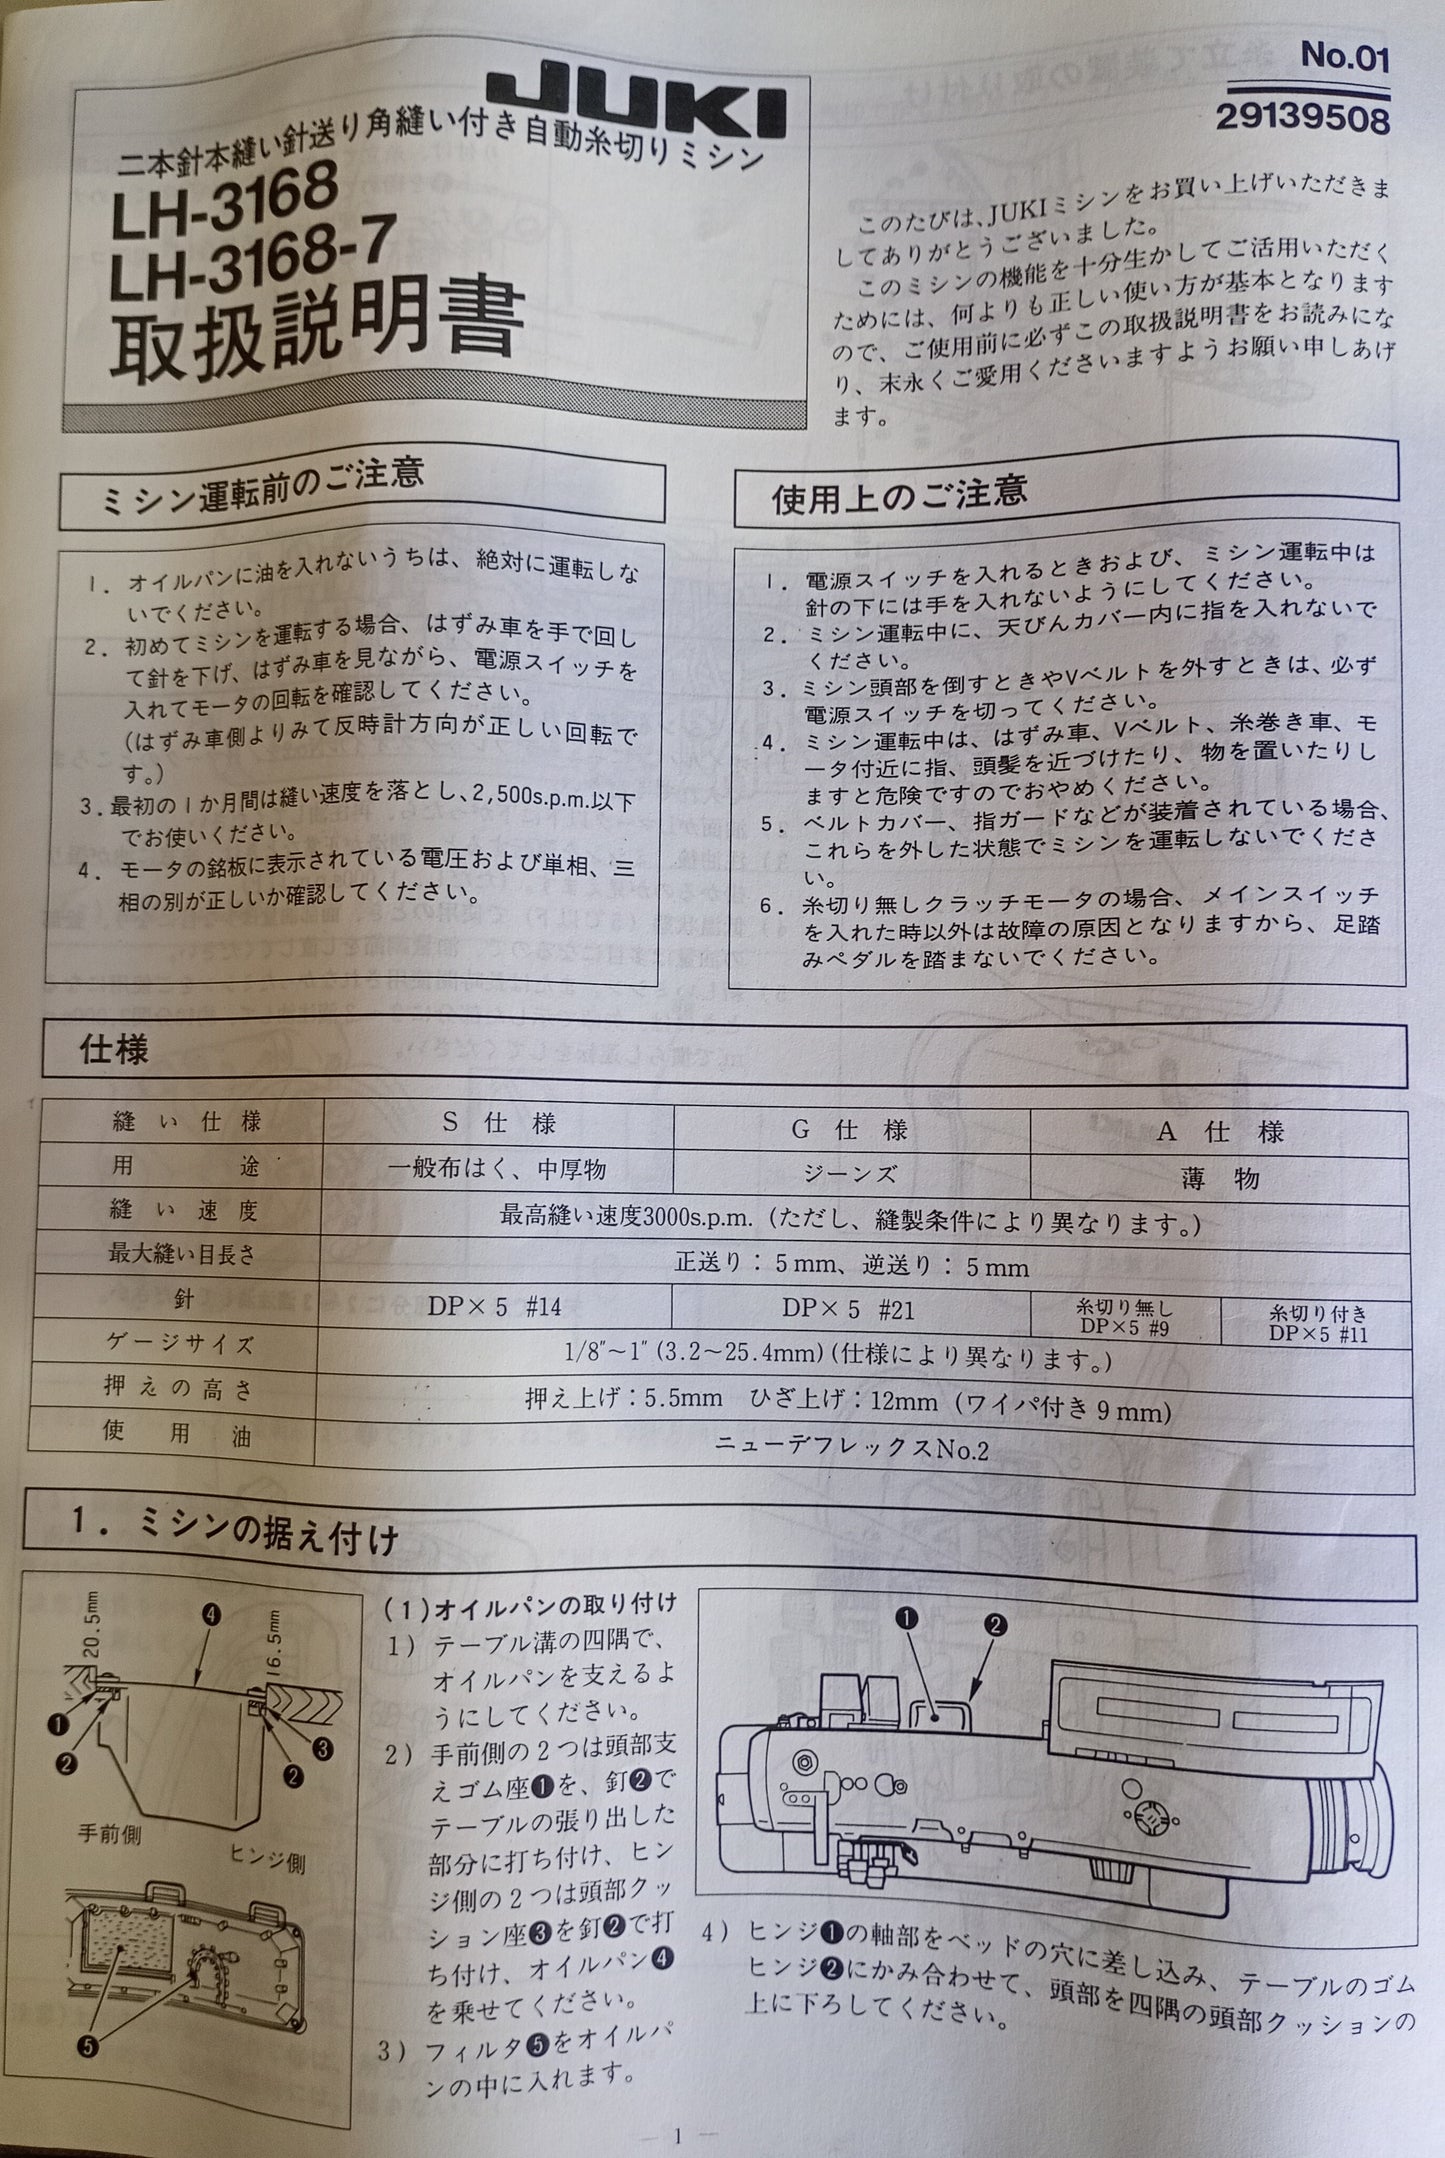 JUKI
二本針本縫い針送り角縫い付き自動糸切りミシン
LH-3168
LH-3168-7
取扱説明書
No.01
29139508
このたびは、JUKIミシンをお買い上げいただきま
してありがとうございました。
このミシンの機能を十分生かしてご活用いただく
ためには、何よりも正しい使い方が基本となります
ので、ご使用前に必ずこの取扱説明書をお読みにな
り、末永くご愛用くださいますようお願い申しあげ
ます。
ミシン運転前のご注意
1. オイルパンに油を入れないうちは、絶対に運転しな
いでください。
2. 初めてミシンを運転する場合、はずみ車を手で回し
て針を下げ、はずみ車を見ながら、電源スイッチを
入れてモータの回転を確認してください。
(はずみ車側よりみて反時計方向が正しい回転で
す。)
3. 最初の1か月間は縫い速度を落とし、2,500s.p.m.以下
でお使いください。
4. モータの銘板に表示されている電圧および単相、三
相の別が正しいか確認してください。
使用上のご注意
1. 電源スイッチを入れるときおよび、ミシン運転中は
針の下には手を入れないようにしてください。
2. ミシン運転中に、天びんカバー内に指を入れないで
ください。
3. ミシン頭部を倒すときやVベルトを外すときは、必ず
電源スイッチを切ってください。
4. ミシン運転中は、はずみ車、Vベルト、糸巻き車、モ
ータ付近に指、頭髪を近づけたり、物を置いたりし
ますと危険ですのでおやめください。
5. ベルトカバー、指ガードなどが装着されている場合、
これらを外した状態でミシンを運転しないでくださ
い。
6. 糸切り無しクラッチモータの場合、メインスイッチ
を入れた時以外は故障の原因となりますから、足踏
みペダルを踏まないでください。
仕様
縫い仕様 S仕様 G仕様 A仕様
用途 一般布はく、中厚物 ジーンズ 薄物
縫い速度 最高縫い速度3000s.p.m. (ただし、縫製条件により異なります。)
最大縫い目長さ 正送り：5mm、逆送り：5mm
針 DP×5 #14 DP×5 #21 糸切り無し DP×5 #9 糸切り付き DP×5 #11
ゲージサイズ 1/8"～1" (3.2～25.4mm) (仕様により異なります。)
押えの高さ 押え上げ：5.5mm ひざ上げ：12mm (ワイパ付き9mm)
使用油 ニューデフレックスNo.2
1. ミシンの据え付け
20.5mm
❹
16.5mm
❶
❷
❸
❷
手前側
ヒンジ側
❺
(1)オイルパンの取り付け
1) テーブル溝の四隅で、
オイルパンを支えるよ
うにしてください。
2) 手前側の2つは頭部支
えゴム座❶を、釘❷で
テーブルの張り出した
部分に打ち付け、ヒン
ジ側の2つは頭部クッ
ション座❸を釘❷で打
ち付け、オイルパン❹
を乗せてください。
3) フィルタ❺をオイルパ
ンの中に入れます。
❶
❷
4) ヒンジ❶の軸部をベッドの穴に差し込み、テーブルのゴム
ヒンジ❷にかみ合わせて、頭部を四隅の頭部クッションの
上に下ろしてください。
— 1 —